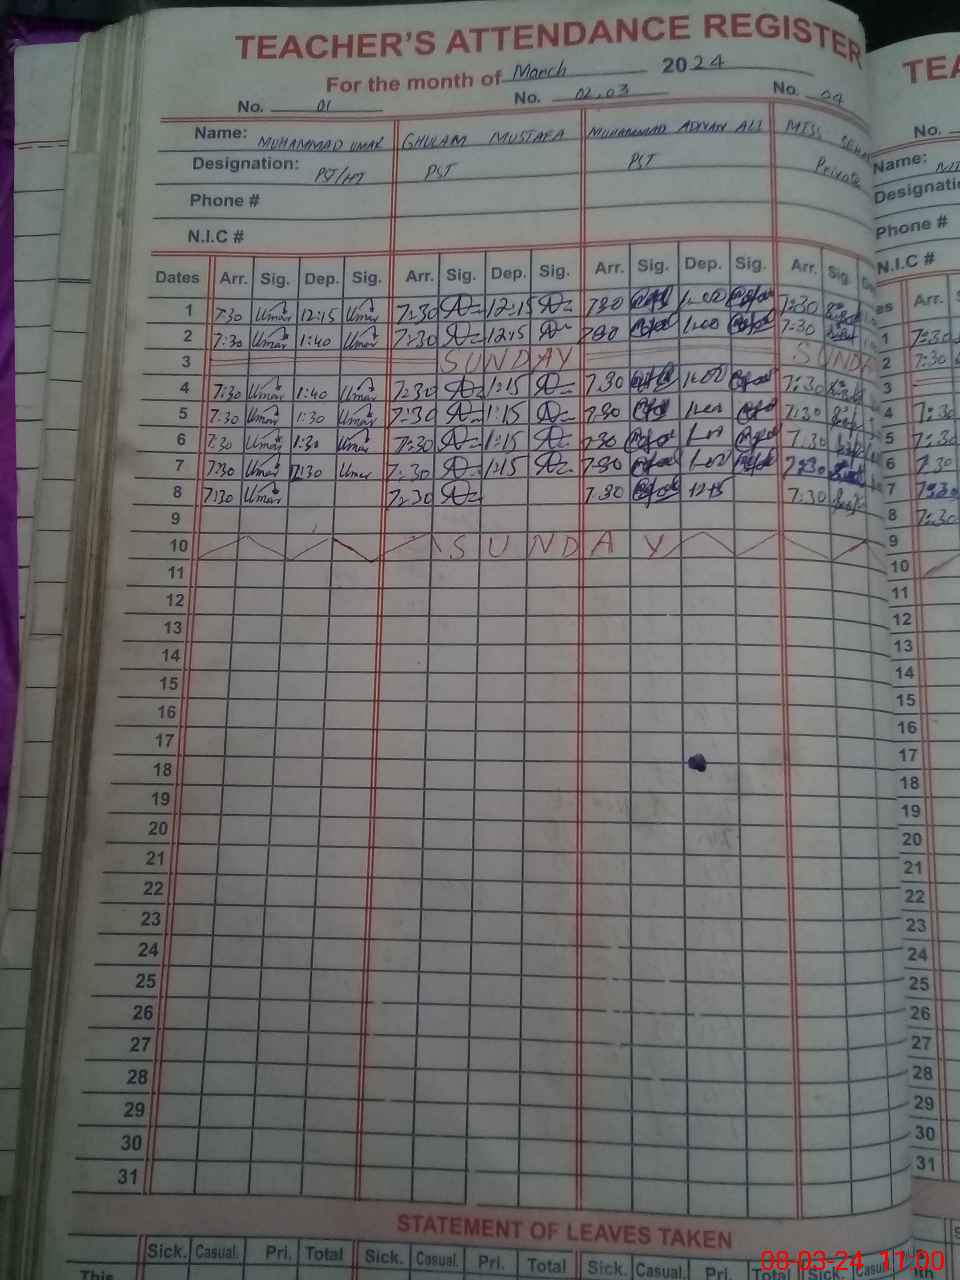 TEACHER'S ATTENDANCE REGISTER
For the month of March 2024
No. 01 No. 02,03 No. 04
Name: MUHAMMAD UMAR GHULAM MUSTAFA MUHAMMAD ADNAN ALI MISS
Designation: PST/HT PST PST Private
Phone #
N.I.C #
Dates Arr. Sig. Dep. Sig. Arr. Sig. Dep. Sig. Arr. Sig. Dep. Sig. Arr. Sig.
1 7:30 Umar 12:15 Umar 7:30 12:15 7:30 1:00 7:30
2 7:30 Umar 1:40 Umar 7:30 12:15 7:30 1:00 7:30
3 SUNDAY SUNDA
4 7:30 Umar 1:40 Umar 7:30 1:15 7:30 1:00 7:30
5 7:30 Umar 1:30 Umar 7:30 1:15 7:30 1:00 7:30
6 7:30 Umar 1:30 Umar 7:30 1:15 7:30 7:30
7 7:30 Umar Umar 7:30 1:15 7:30 1:00 7:30
8 7:30 Umar 7:30 7:30 12:15 7:30
9
10 SUNDAY
11
12
13
14
15
16
17
18
19
20
21
22
23
24
25
26
27
28
29
30
31
STATEMENT OF LEAVES TAKEN
Sick. Casual. Pri. Total Sick. Casual. Pri. Total Sick. Casual. Pri. Total Sick. Casual.
This
TEA
No.
Name:
Designati
Phone #
N.I.C #
Arr.
1 7:30
2 7:30
3
4 7:30
5 7:30
6 7:30
7 7:30
8 7:30
9
10
11
12
13
14
15
16
17
18
19
20
21
22
23
24
25
26
27
28
29
30
31
08-03-24 11:00